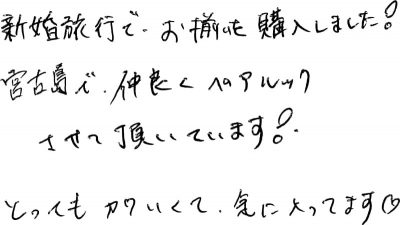 新婚旅行で、お揃いを購入しました!
宮古島で、仲良くペアルック
させて頂いています!
とってもカワいくて、気に入ってます☺